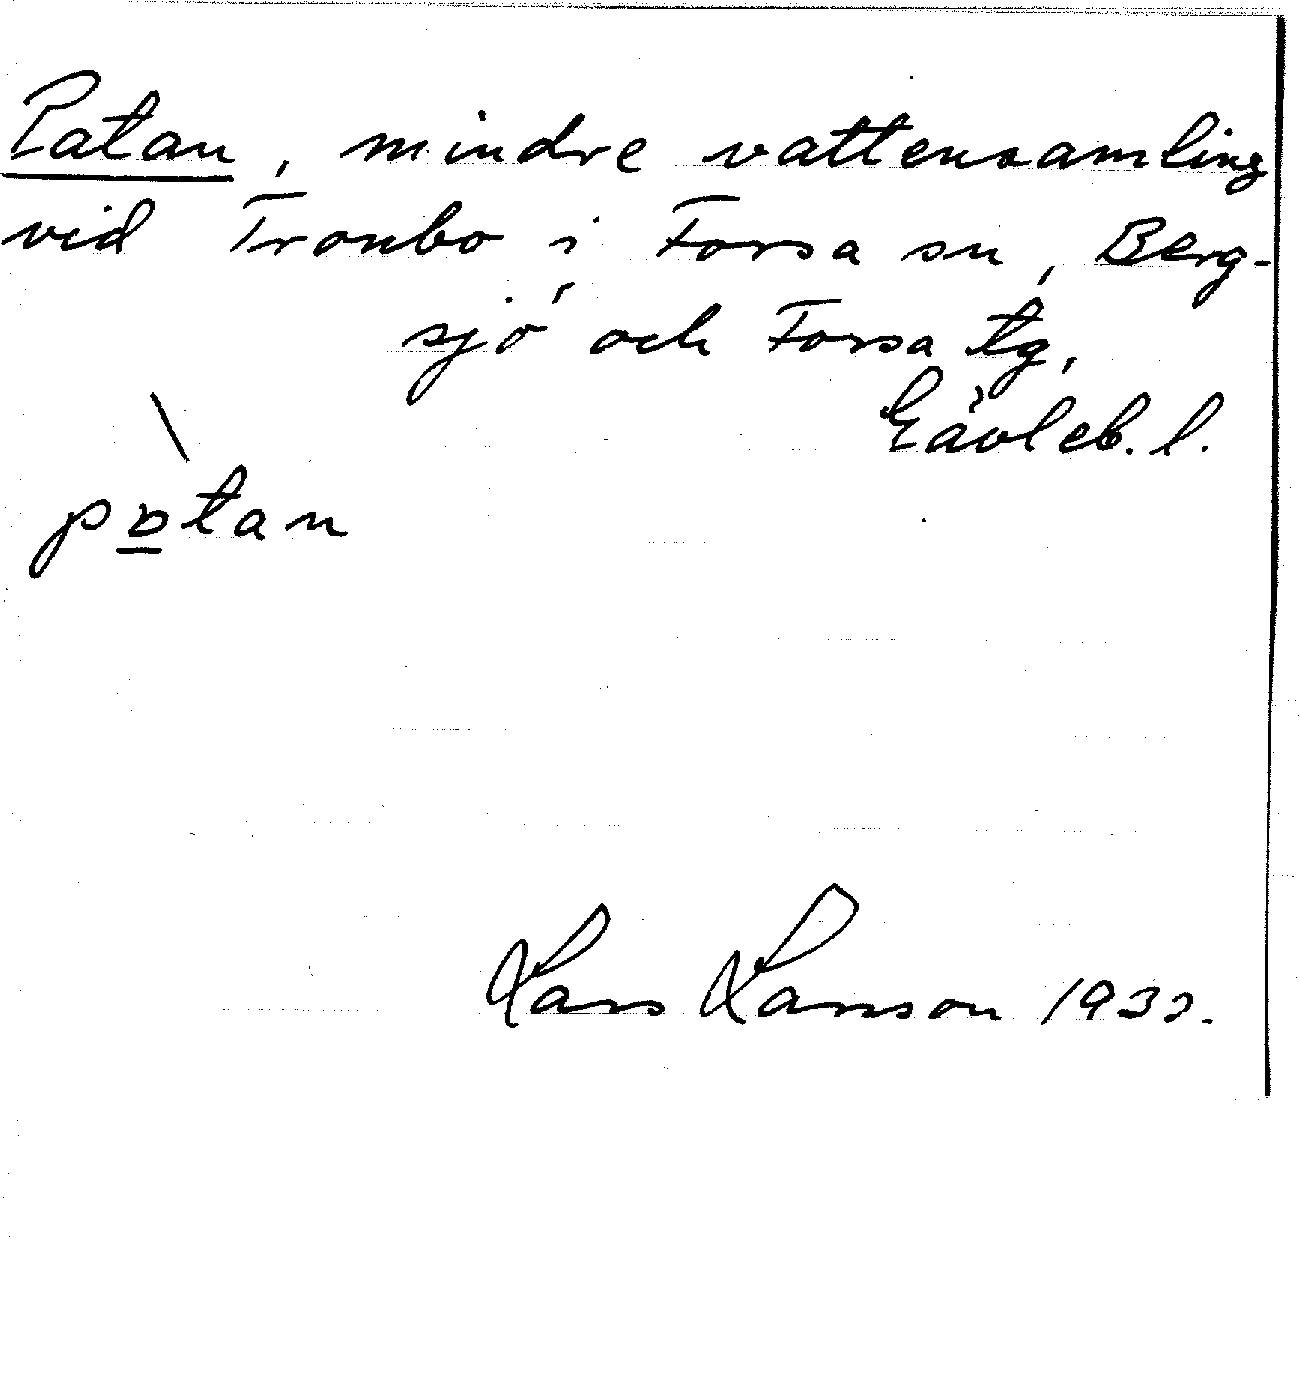 Patan, mindre vattensamling
vid Trombo i Forsa sn, Berg-
sjö och Forsa tg,
Gävleb. l.
pɒtan
Lars Larsson 1932.